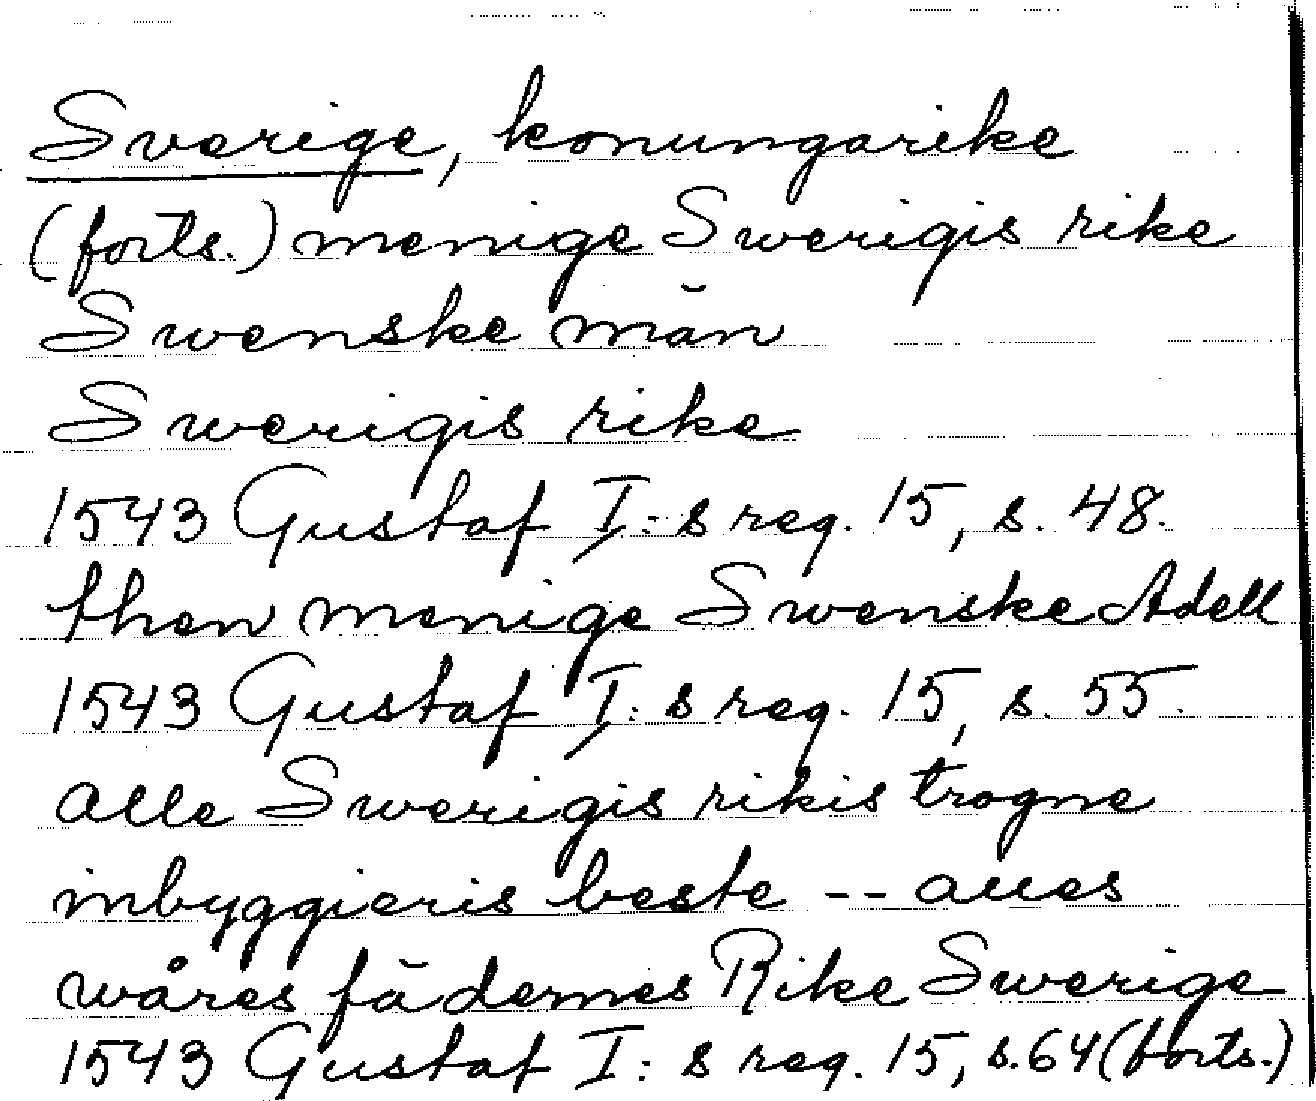 Sverige, konungarike
(forts.) menige Swerigis rike
Swenske män
Swerigis rike
1543 Gustaf I:s reg. 15, s. 48.
then menige Swenske Adell
1543 Gustaf I:s reg. 15, s. 55.
alle Swerigis rikis trogne
inbyggieris beste -- aues
wåres fädernes Rike Swerige
1543 Gustaf I:s reg. 15, s. 64 (forts.)